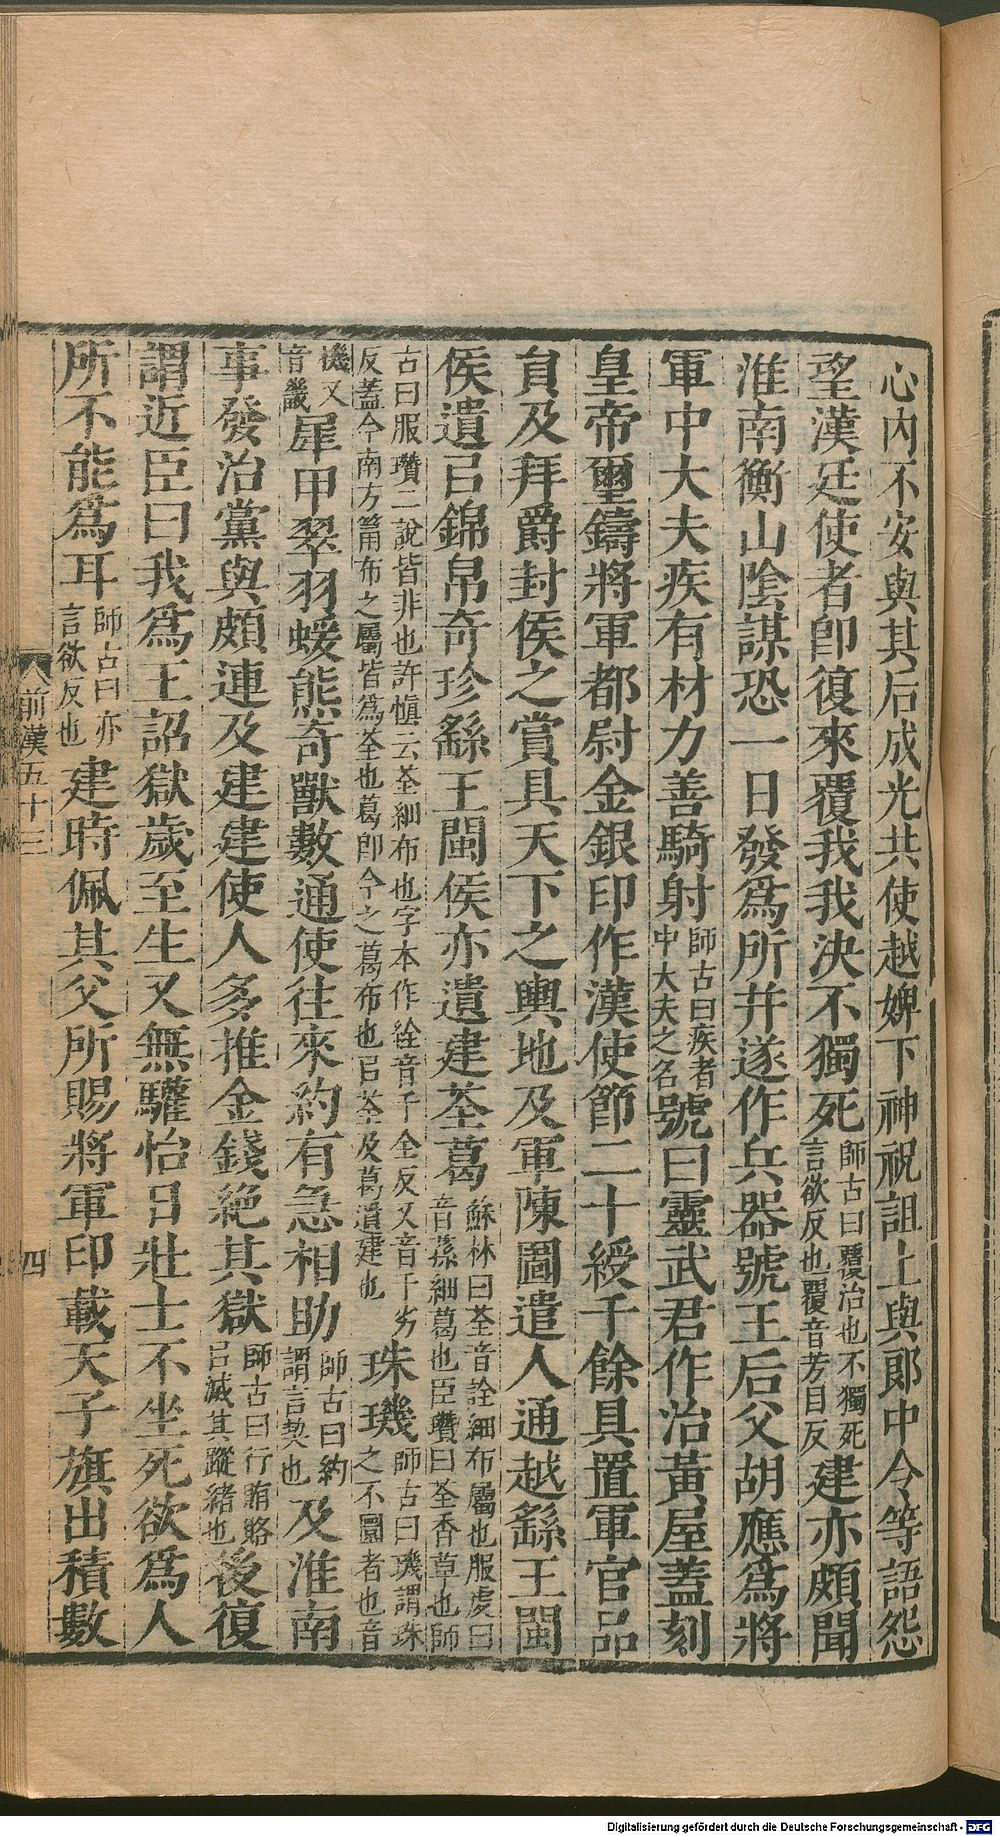 心内不安與其后成光共使越婢下神祝詛上與郞中令等語怨
望漢廷使者卽復來覆我我決不獨死師古曰覆治也不獨死言欲反也覆音芳目反建亦頗聞
淮南衡山陰謀恐一日發爲所并遂作兵器號王后父胡應爲將
軍中大夫疾有材力善騎射師古曰疾者中大夫之名號曰靈武君作治黃屋蓋刻
皇帝璽鑄將軍都尉金銀印作漢使節二十綬千餘具置軍官品
員及拜爵封侯之賞具天下之輿地及軍陳圖遣人通越繇王閩
侯遺㠯錦帛奇珍繇王閩侯亦遺建荃葛蘇林曰荃音詮細布屬也服虔曰音蓀細葛也臣瓚曰荃香草也師
古曰服瓚二說皆非也許愼云荃細布也字本作絟音千全反又音千劣反蓋今南方筩布之屬皆爲荃也葛卽今之葛布也㠯荃及葛遺建也珠璣師古曰璣謂珠之不圜者也音
機又音畿犀甲翠羽蝯熊奇獸數通使往來約有急相助師古曰約謂言契也及淮南
事發治黨與頗連及建建使人多推金錢絕其獄師古曰行賄賂㠯滅其蹤緒也後復
謂近臣曰我爲王詔獄歲至生又無驩怡日壯士不坐死欲爲人
所不能爲耳師古曰亦言欲反也建時佩其父所賜將軍印載天子旗出積數
前漢五十三
四
Digitalisierung gefördert durch die Deutsche Forschungsgemeinschaft - DFG